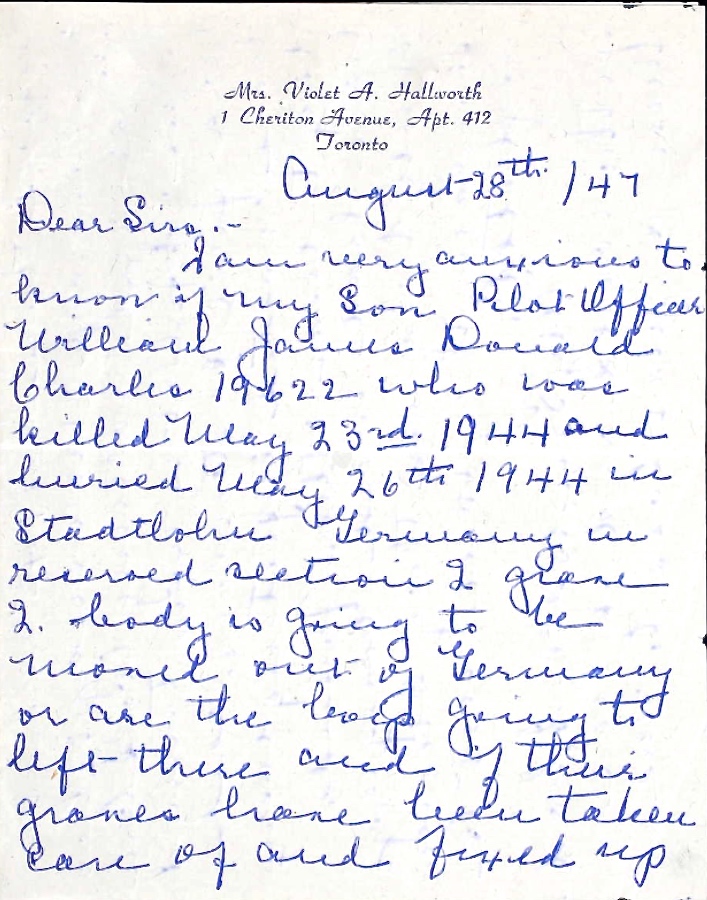 Mrs. Violet A. Hallworth
1 Cheriton Avenue, Apt. 412
Toronto
August 28th. /47
Dear Sirs.-
I am very anxious to
know if my Son Pilot Officer
William James Donald
Charles 19622 who was
killed May 23rd. 1944 and
buried May 26th 1944 in
Stadtlohn Germany in
reserved section 2 grave
2. body is going to be
moved out of Germany
or are the boys going to
left there and if their
graves have been taken
care of and fixed up